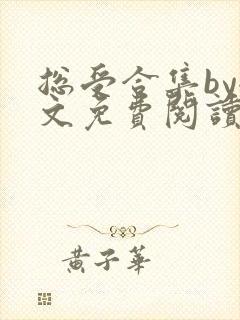 总受合集by
文免費閱讀
黃子華